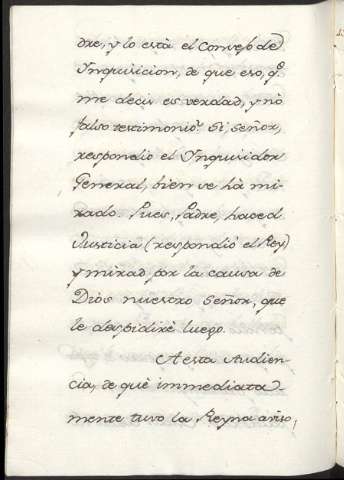 dre, y lo està el Consejo de
Inquisicion, de que eso, q.e
me decis es verdad, y nò
falso testimonio? Si, señor,
respondió el Inquisidor
General, bien se hà mi-
rado. Pues, Padre, haced
Justicia (respondió el Rey)
y mirad por la causa de
Dios nuestro Señor, que
le despidirè luego.
A esta Audien-
cia, de què immediata-
mente tuvo la Reyna aviso,